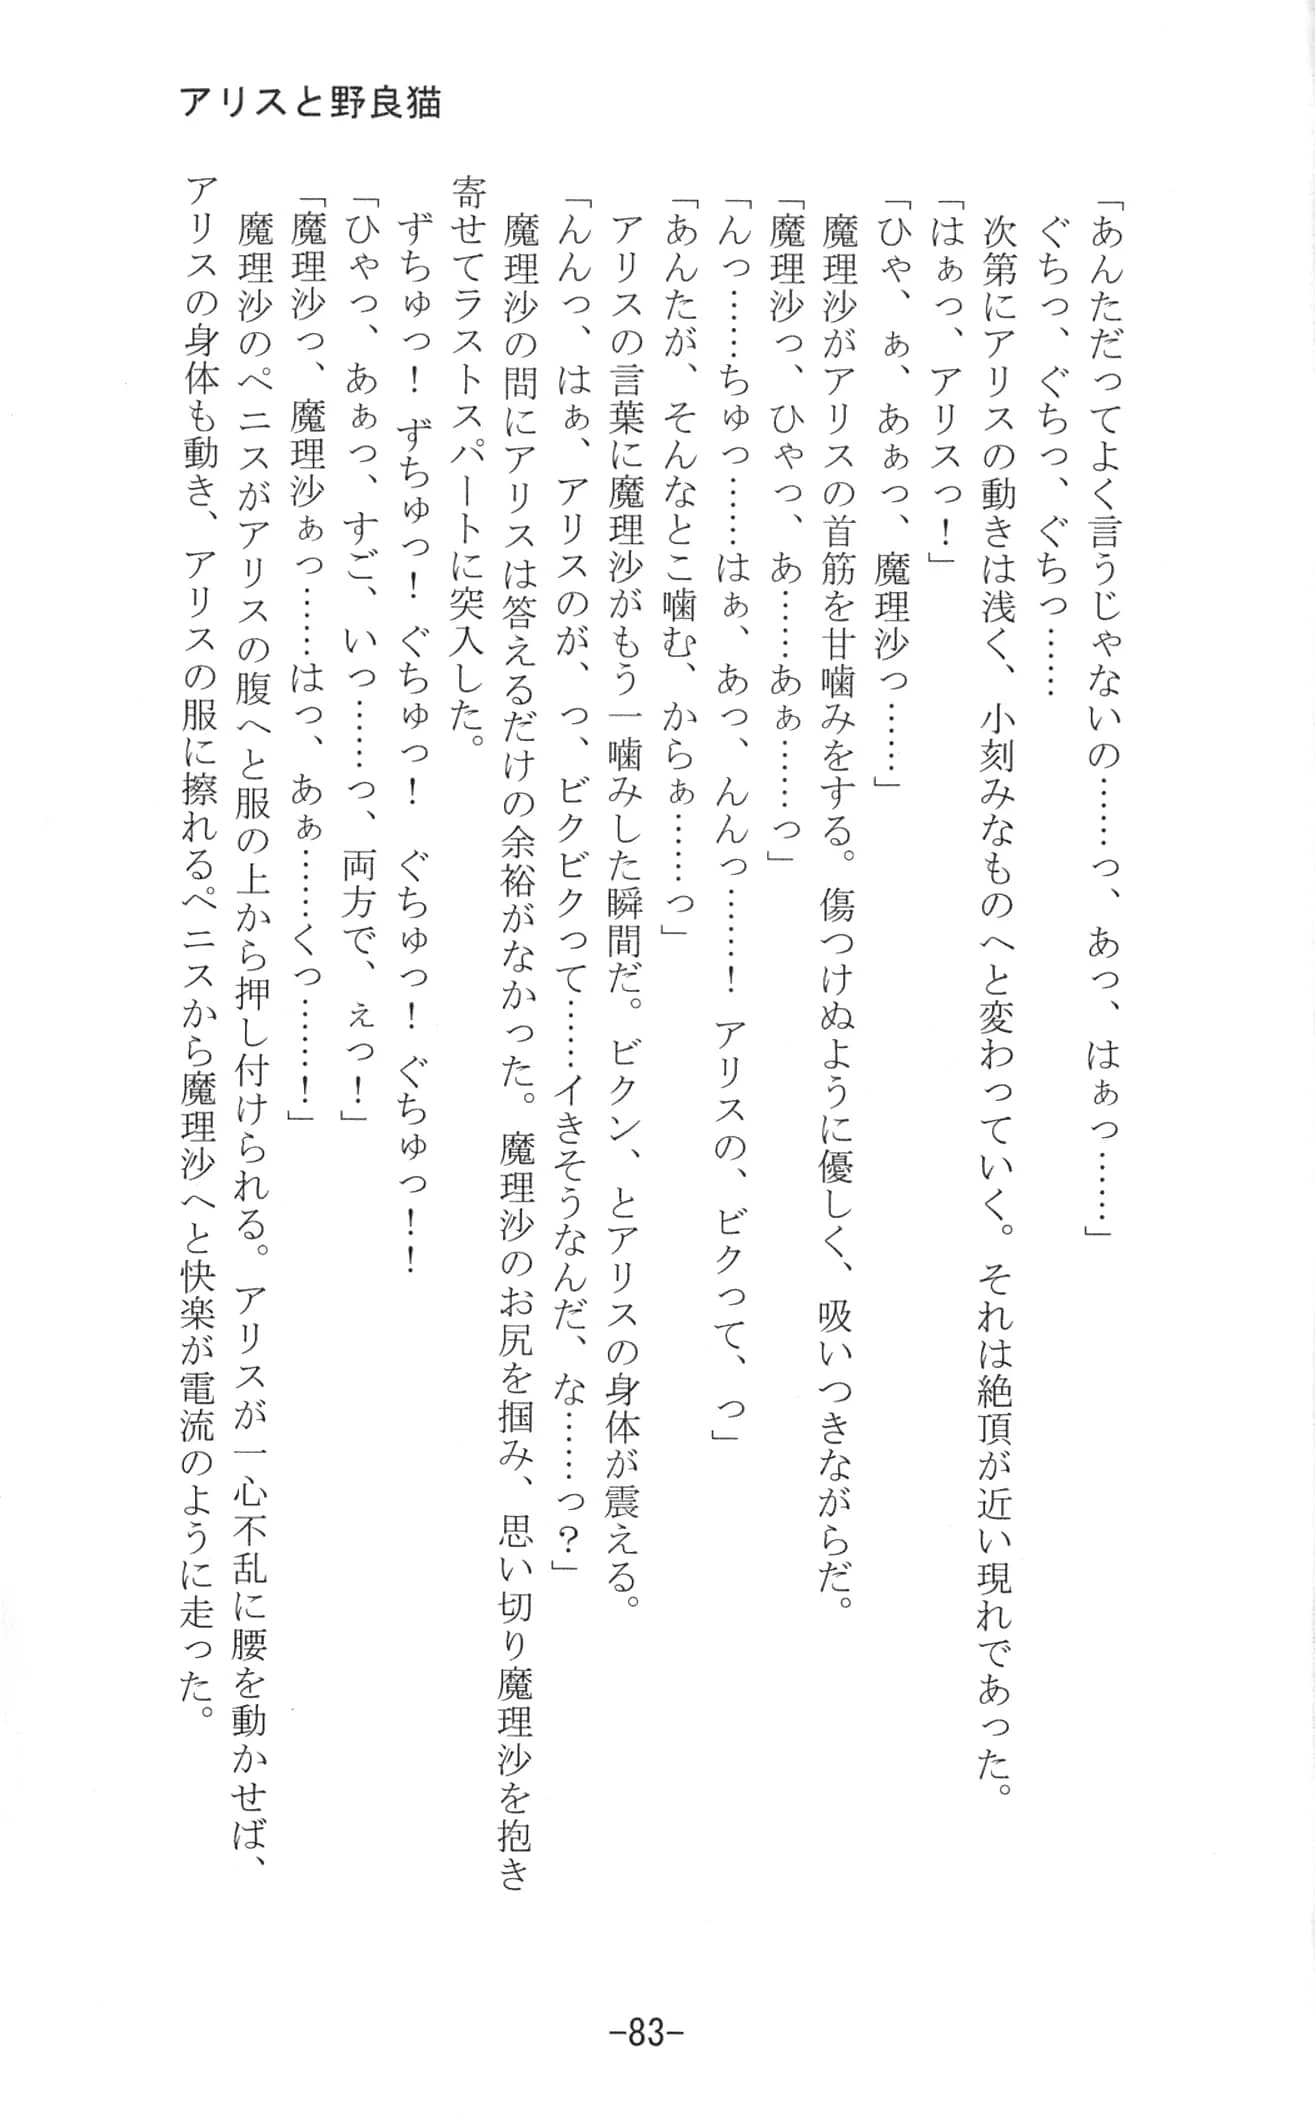 アリスと野良猫
「あんただってよく言うじゃないの……っ、あっ、はぁっ……」
ぐちっ、ぐちっ、ぐちっ……
次第にアリスの動きは浅く、小刻みなものへと変わっていく。それは絶頂が近い現れであった。
「はぁっ、アリスっ！」
「ひゃ、ぁ、あぁっ、魔理沙っ……」
魔理沙がアリスの首筋を甘噛みをする。傷つけぬように優しく、吸いつきながらだ。
「魔理沙っ、ひゃっ、あ……あぁ……っ」
「んっ……ちゅっ……はぁ、あっ、んんっ……！　アリスの、ビクって、っ」
「あんたが、そんなとこ噛む、からぁ……っ」
アリスの言葉に魔理沙がもう一噛みした瞬間だ。ビクン、とアリスの身体が震える。
「んんっ、はぁ、アリスのが、っ、ビクビクって……イきそうなんだ、な……っ？」
魔理沙の問にアリスは答えるだけの余裕がなかった。魔理沙のお尻を掴み、思い切り魔理沙を抱き
寄せてラストスパートに突入した。
ずちゅっ！ずちゅっ！ぐちゅっ！　ぐちゅっ！ぐちゅっ！！
「ひゃっ、あぁっ、すご、いっ……っ、両方で、ぇっ！」
「魔理沙っ、魔理沙ぁっ……はっ、あぁ……くっ……！」
魔理沙のペニスがアリスの腹へと服の上から押し付けられる。アリスが一心不乱に腰を動かせば、
アリスの身体も動き、アリスの服に擦れるペニスから魔理沙へと快楽が電流のように走った。
-83-